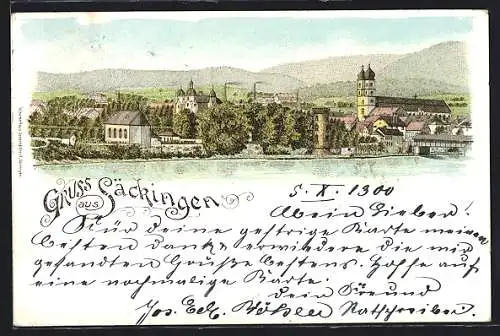 GRUSS aus Säckingen
5. X. 1900
Mein Lieber!
Für deine gestrige Karte meinen
besten Dank & erwiedere die mir
gesandten Grüße bestens. Hoffe auf
eine nochmalige Karte.
Dein Freund
Jos. Ratschreiber.